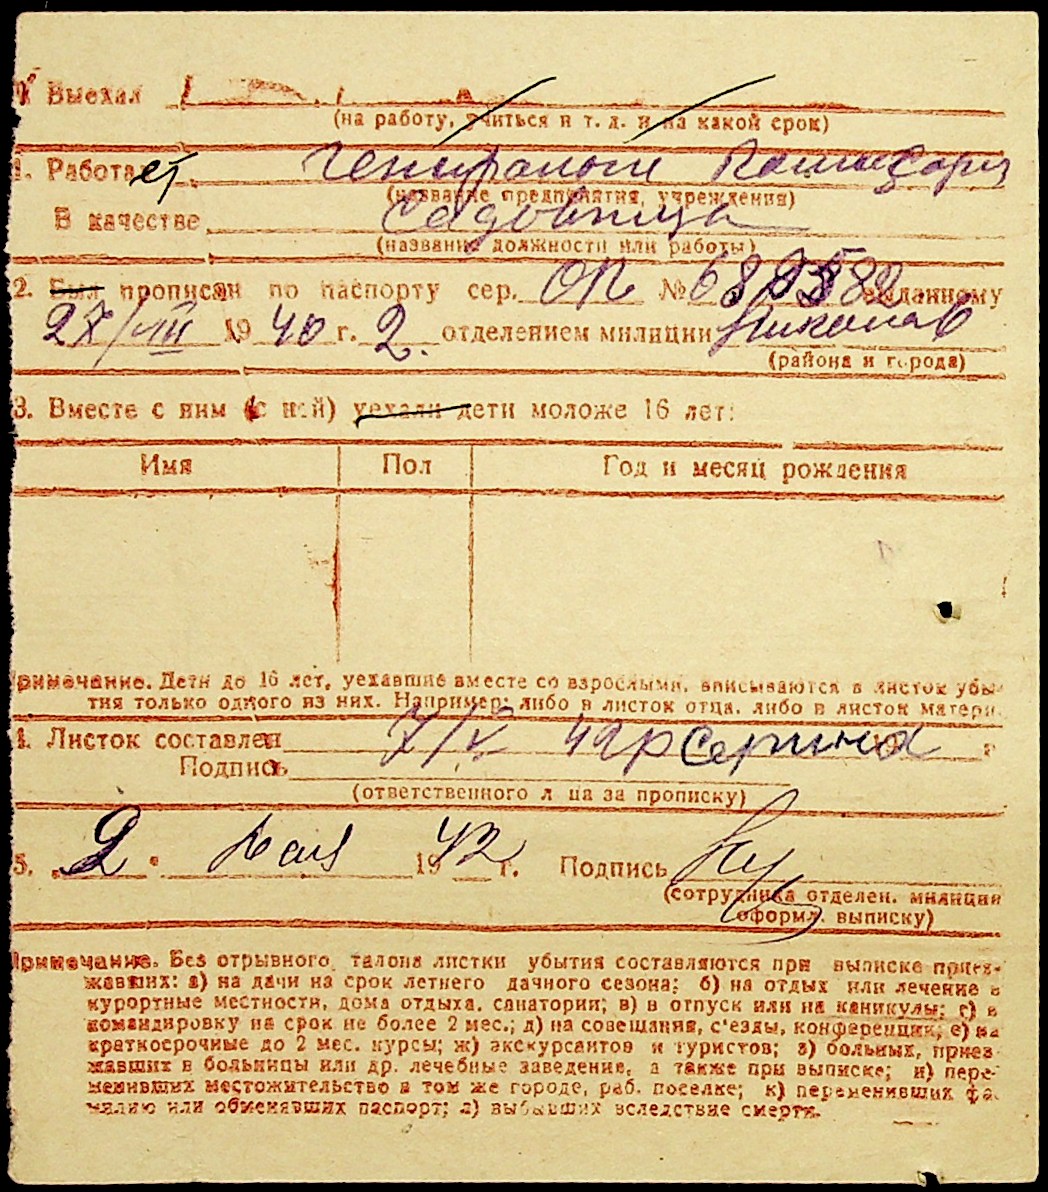 Выехал
(на работу, учиться и т. д. и на какой срок)
1. Работает
(название предприятия, учреждения)
В качестве садовница
(название должности или работы)
2. Был прописан по паспорту сер. ОП № выданному
27/VIII 1940 г. 2. отделением милиции Николаев
(района и города)
3. Вместе с ним (с ней) уехали дети моложе 16 лет:
Имя Пол Год и месяц рождения
Примечание. Дети до 16 лет, уехавшие вместе со взрослыми, вписываются в листок убы-
тия только одного из них. Например: либо в листок отца, либо в листок матери.
4. Листок составлен 7/V г.
Подпись
(ответственного лица за прописку)
5. „9" мая 1942 г. Подпись
(сотрудника отделен. милиции
оформл. выписку)
Примечание. Без отрывного талона листки убытия составляются при выписке приез-
жавших: а) на дачи на срок летнего дачного сезона; б) на отдых или лечение в
курортные местности, дома отдыха, санатории; в) в отпуск или на каникулы; г) в
командировку на срок не более 2 мес.; д) на совещания, с'езды, конференции; е) на
краткосрочные до 2 мес. курсы; ж) экскурсантов и туристов; з) больных, приез-
жавших в больницы или др. лечебные заведение, а также при выписке; и) пере-
менивших местожительство в том же городе, раб. поселке; к) переменивших фа-
милию или обменявших паспорт; л) выбывших вследствие смерти.